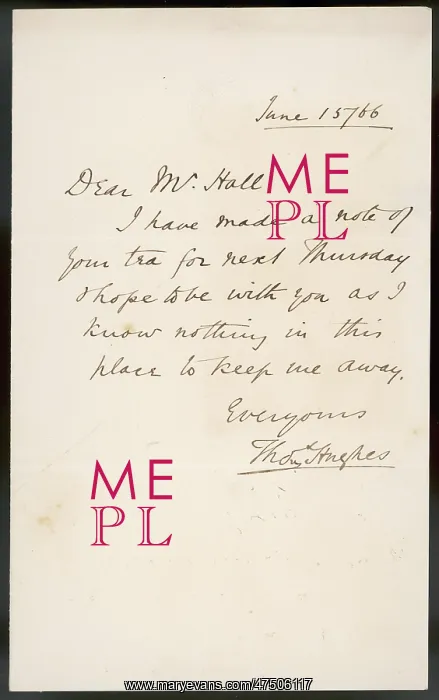 June 15/66
Dear Mr. Hall
I have made a note of
your tea for next Thursday
& hope to be with you as I
know nothing in this
place to keep me away.
Ever yours
Thos. Hughes
ME
PL
ME
PL
www.maryevans.com/47506117